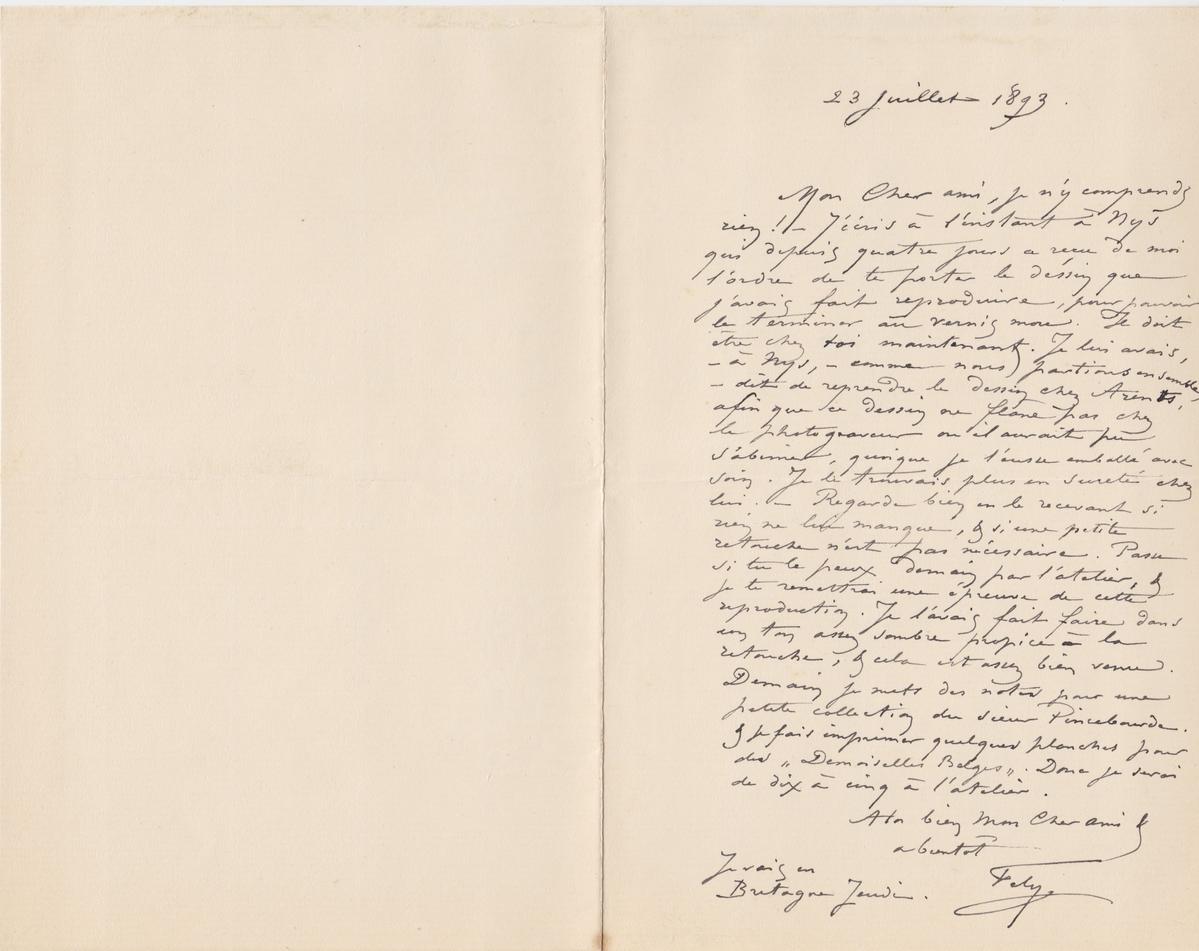 23 Juillet 1893.
Mon Cher ami, je n'y comprends
rien ! – J'écris à l'instant à Nys
qui depuis quatre jours a recu de moi
l'ordre de te porter le dessin que
j'avais fait reproduire, pour pouvoir
le terminer au vernis mou. Il doit
être chez toi maintenant. Je lui avais,
– à Nys, – comme nous partions ensemble,
– dit de reprendre le dessin chez Arents,
afin que ce dessin ne flane pas chez
le photograveur ou il aurait pu
s'abimer, quoique je l'eusse emballé avec
soin. Je le trouvais plus en sureté chez
lui. – Regarde bien en le recevant si
rien ne lui manque, & si une petite
retouche n'est pas nécessaire. Passe
si tu le peux demain par l'atelier, &
je te remettrai une épreuve de cette
reproduction. Je l'avais fait faire dans
un ton assez sombre propice à la
retouche, & cela est assez bien venu.
Demain je mets des notes pour une
petite collection du sieur Pincebourde.
& je fais imprimer quelques planches pour
des „ Demoiselles Belges „. Donc je serai
de dix à cinq à l'atelier.
A toi bien Mon Cher ami &
a bientôt
Fély
Je vais en
Bretagne Jeudi.